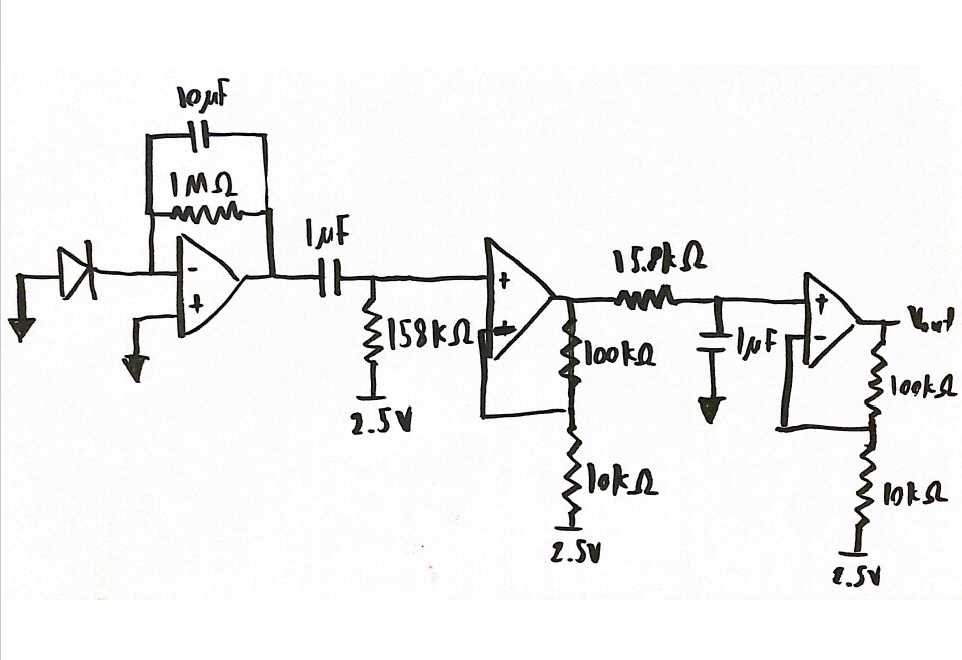 10µF
1MΩ
-
+
1µF
158kΩ
2.5V
+
100kΩ
10kΩ
2.5V
15.8kΩ
1µF
+
-
Vout
100kΩ
10kΩ
2.5V